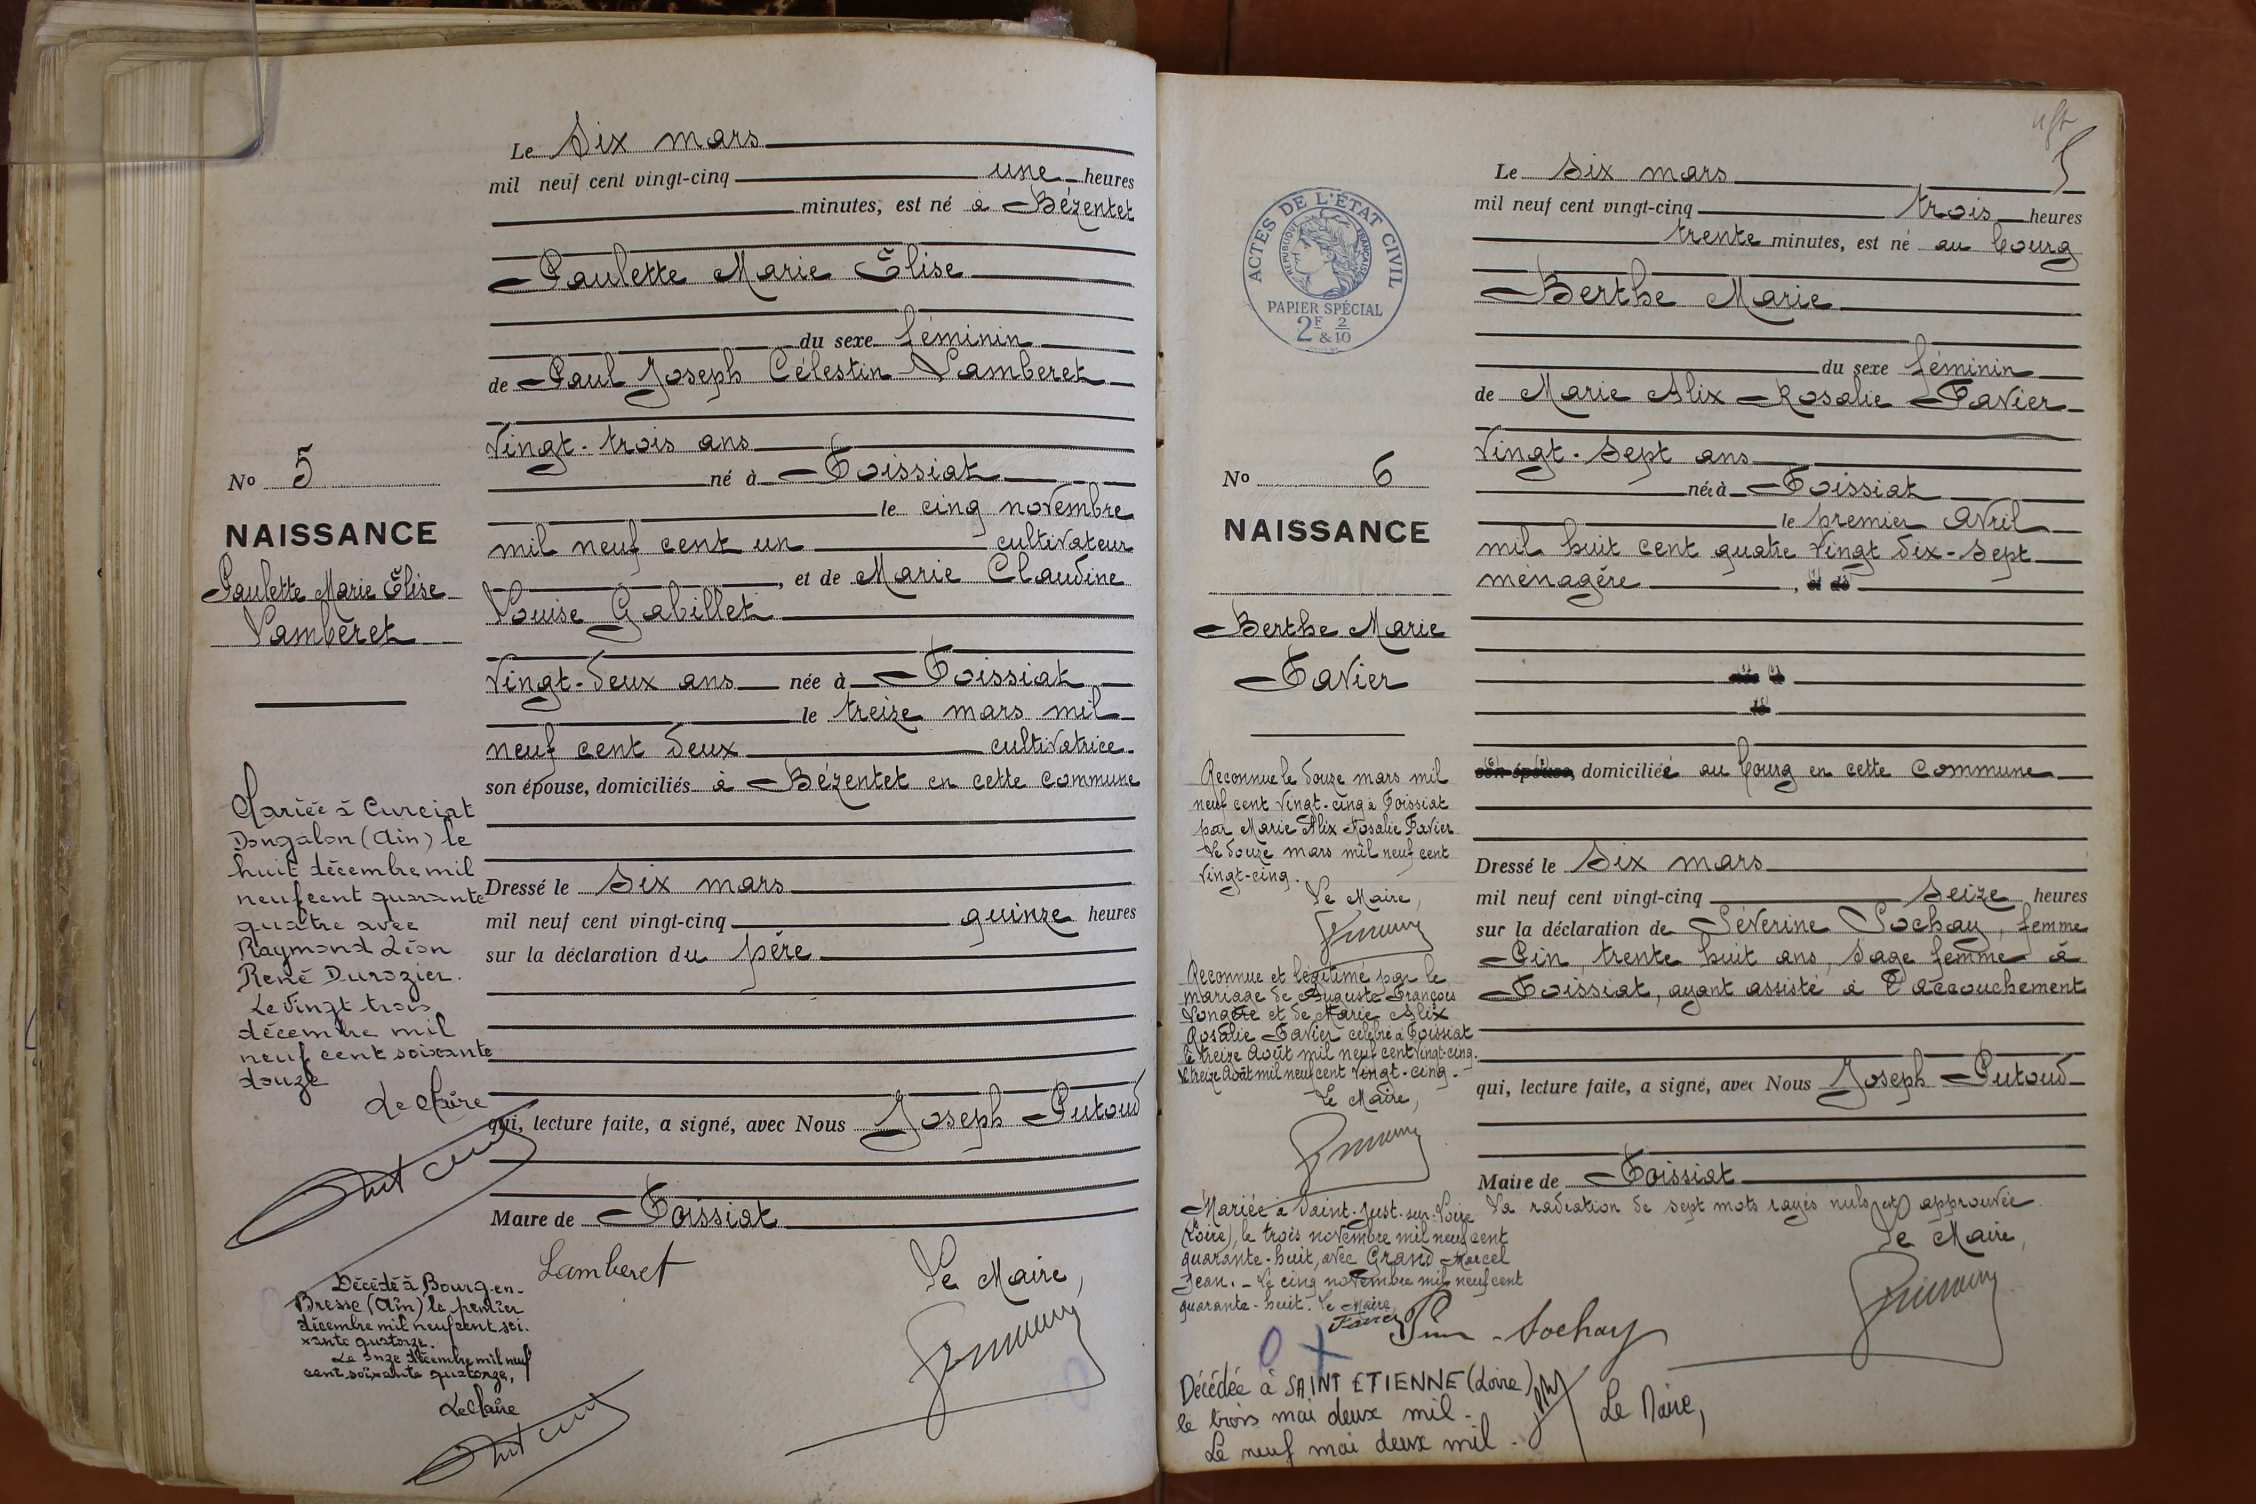 Le Six mars
mil neuf cent vingt-cinq une heures
minutes, est né à Bézentet
Paulette Marie Élise
du sexe féminin
de Paul Joseph Célestin Lamberet
vingt-trois ans
né à Foissiat
le cinq novembre
mil neuf cent un cultivateur
, et de Marie Claudine
Louise Gabillet
vingt-deux ans née à Foissiat
le treize mars mil
neuf cent deux cultivatrice
son épouse, domiciliés à Bézentet en cette commune
Dressé le six mars
mil neuf cent vingt-cinq quinze heures
sur la déclaration du père
qui, lecture faite, a signé, avec Nous Joseph Putoud
Maire de Foissiat
Lamberet
Le Maire,
No 5
NAISSANCE
Paulette Marie Élise
Lamberet
Mariée à Curciat
Dongalon (Ain) le
huit décembre mil
neuf cent quarante
quatre avec
Raymond Léon
René Durozier.
Le vingt trois
décembre mil
neuf cent soixante
douze
Le Maire
Décédé à Bourg-en-
Bresse (Ain) le premier
décembre mil neuf cent soi-
xante quatorze.
Le onze décembre mil neuf
cent soixante quatorze,
Le Maire
5
Le six mars
mil neuf cent vingt-cinq trois heures
trente minutes, est né au bourg
Berthe Marie
du sexe féminin
de Marie Alix Rosalie Favier
vingt-sept ans
née à Foissiat
le premier avril
mil huit cent quatre vingt dix-sept
ménagère , et de
son épouse, domiciliée au bourg en cette commune
Dressé le six mars
mil neuf cent vingt-cinq seize heures
sur la déclaration de Séverine Sochay, femme
Pin, trente huit ans, sage femme à
Foissiat, ayant assisté à l'accouchement
qui, lecture faite, a signé, avec Nous Joseph Putoud
Maire de Foissiat
La radiation de sept mots rayés nuls est approuvée
Le Maire,
Pin - Sochay
ACTES DE L'ETAT CIVIL
REPUBLIQUE FRANÇAISE
PAPIER SPÉCIAL
2F & 2/10
No 6
NAISSANCE
Berthe Marie
Favier
Reconnue le douze mars mil
neuf cent vingt-cinq à Foissiat
par Marie Alix Rosalie Favier
Le douze mars mil neuf cent
vingt-cinq.
Le Maire,
Reconnue et légitimé par le
mariage de Auguste François
et de Marie Alix
Rosalie Favier célébré à Foissiat
le treize Août mil neuf cent vingt-cinq.
Le treize Août mil neuf cent vingt-cinq.
Le Maire,
Mariée à Saint-Just-sur-Loire
(Loire), le trois novembre mil neuf cent
quarante-huit, avec Grand Marcel
Jean. - Le cinq novembre mil neuf cent
quarante-huit. Le Maire,
Décédée à SAINT ETIENNE (Loire)
le trois mai deux mil -
Le neuf mai deux mil -
Le Maire,